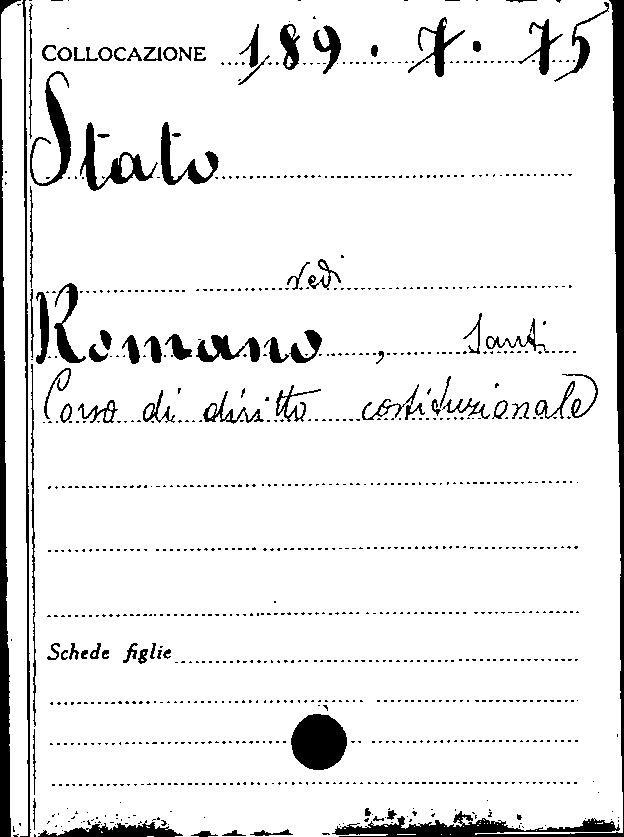 COLLOCAZIONE 189.7.75
Stato
vedi
Romano, Santi
Corso di diritto costituzionale
Schede figlie